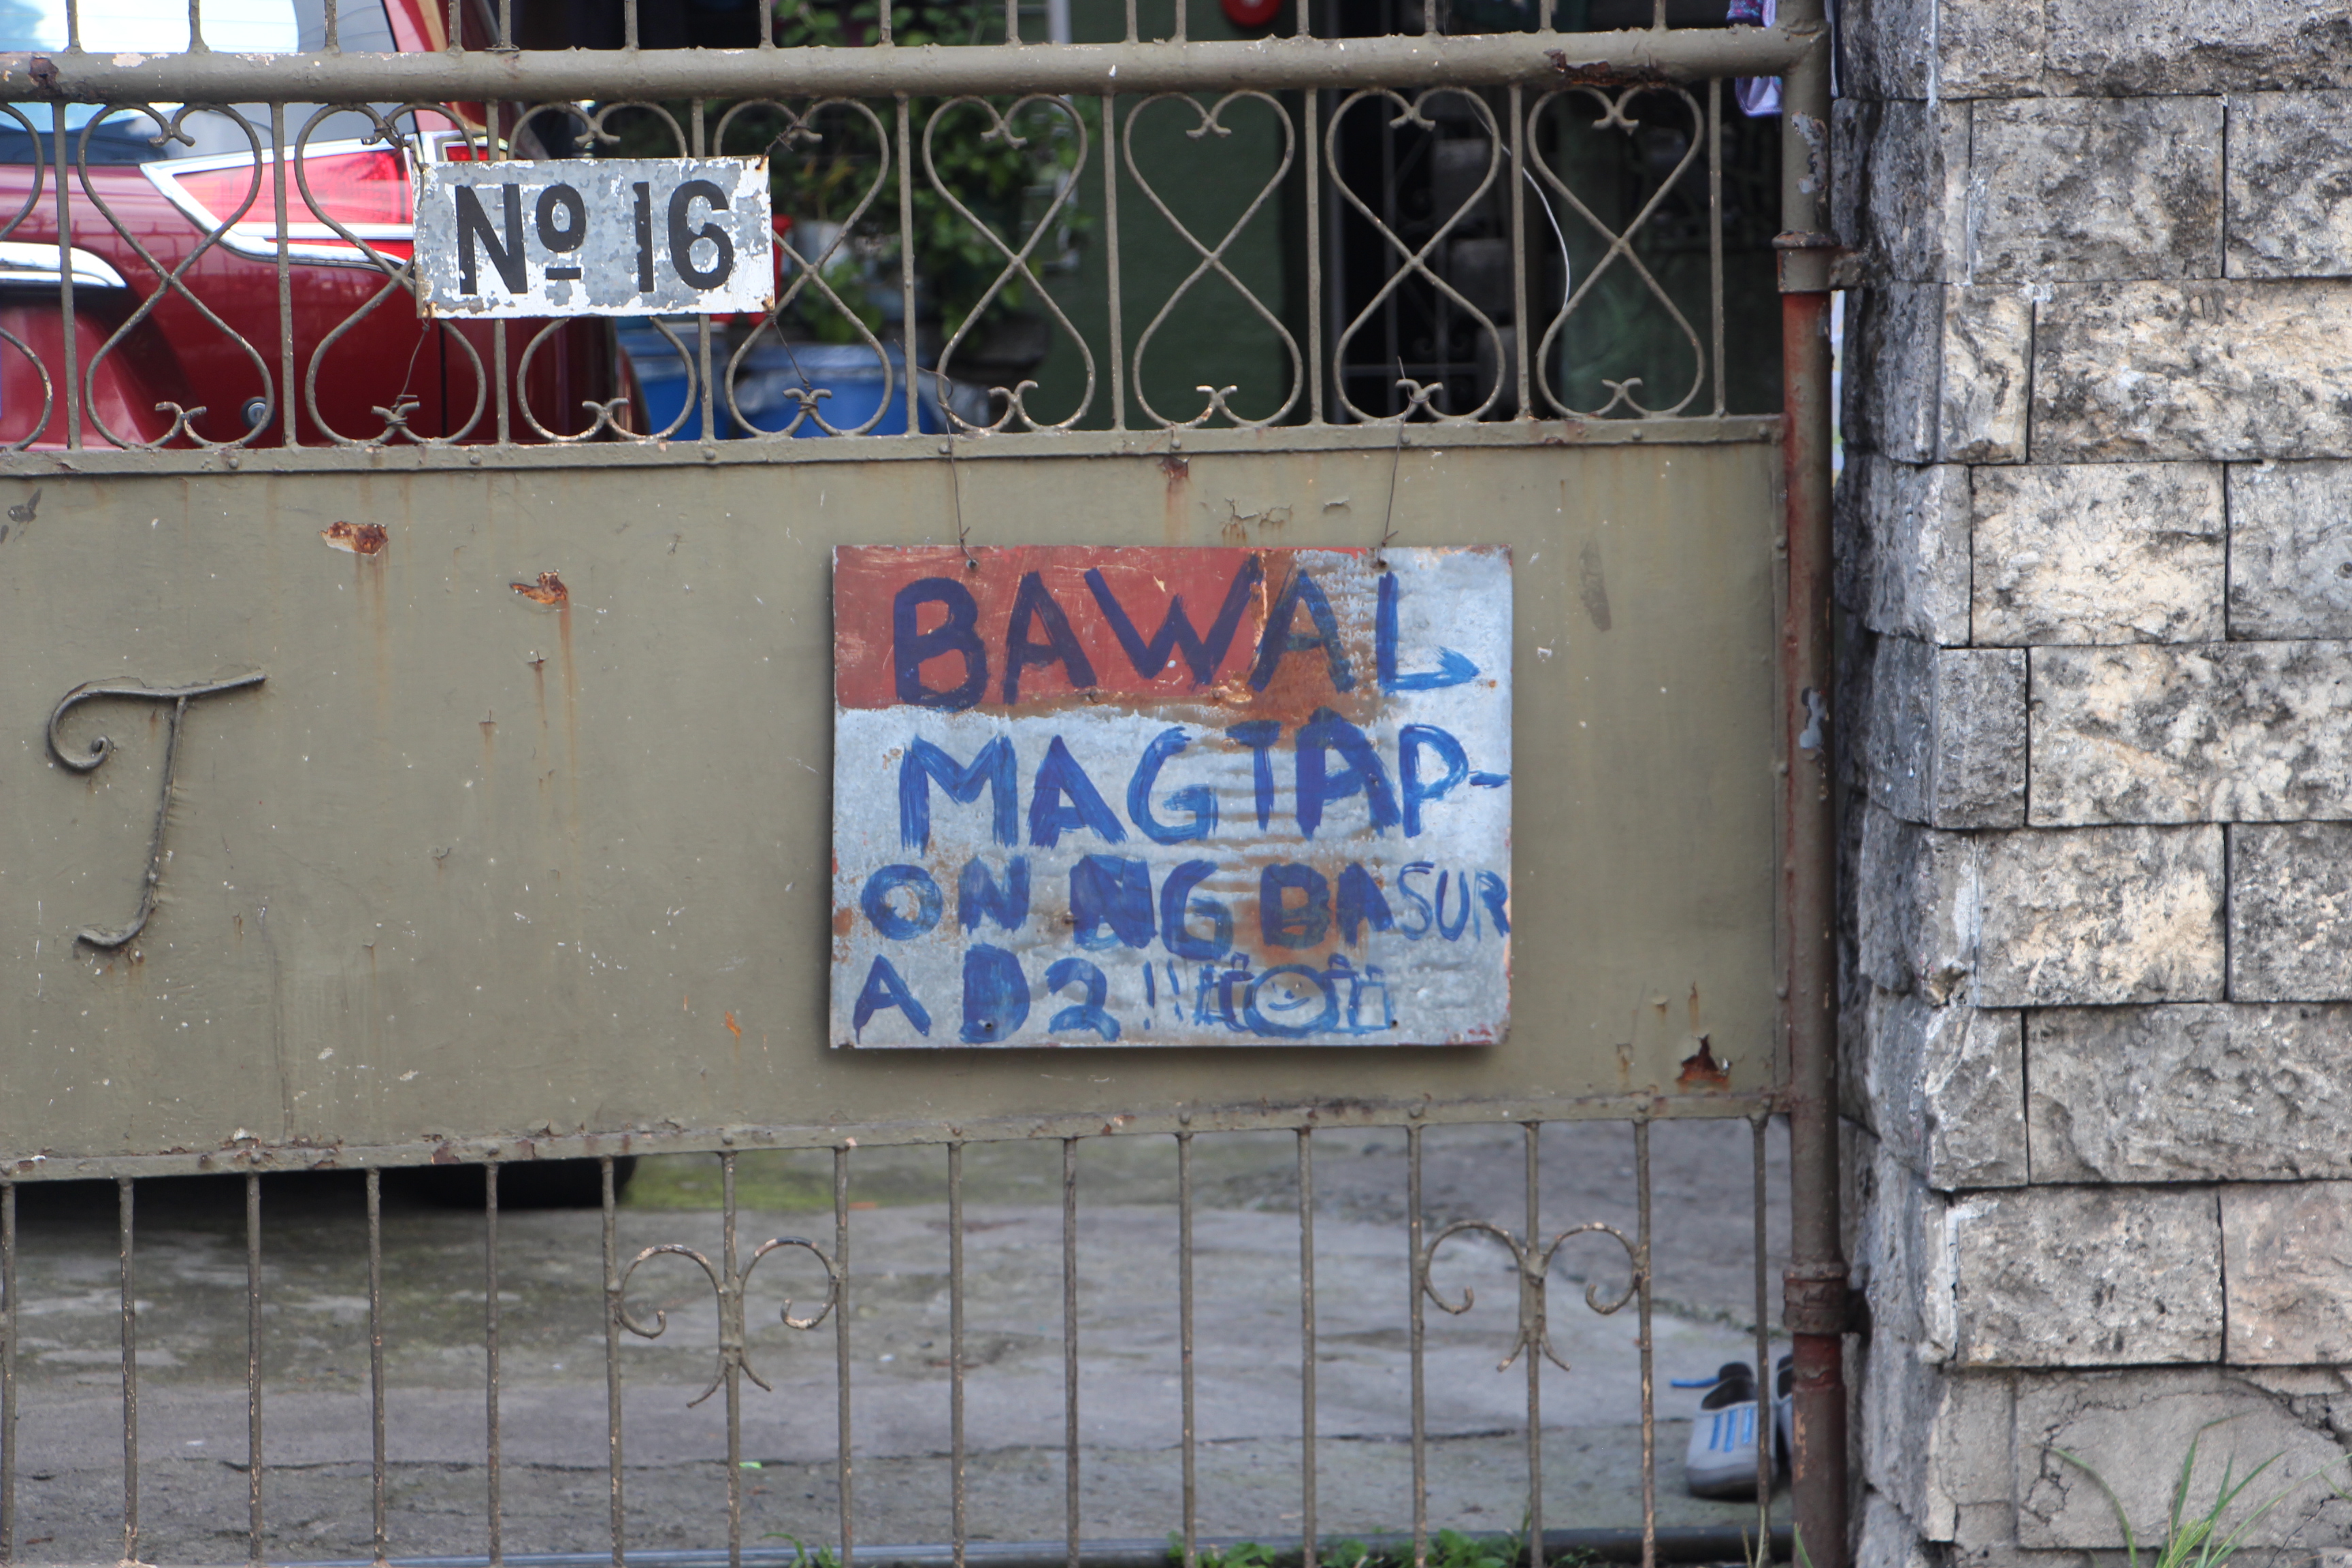 No 16
BAWAL
MAGTAP-
ON NG BASUR
A D2!!
T